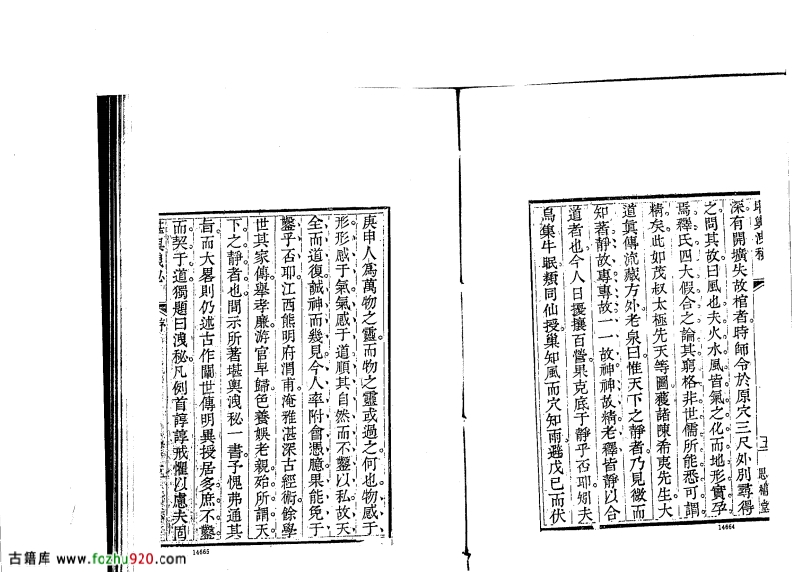 堪輿洩秘
深有開擴失故棺者時師令於原穴三尺外別尋得
之問其故曰風也夫火水風皆氣之化而地形實孕
焉釋氏四大假合之論其窮格非世儒所能悉可謂
精矣此如茂叔太極先天等圖獲諸陳希夷先生大
道眞傳流藏方外老泉曰惟天下之靜者乃見微而
知著靜故專專故一一故神神故精老釋皆靜以合
道者也今人日擾攘百營果克底于靜乎否耶夫
鳥集牛眠類同仙授巢知風而穴知雨遜戊已而伏
思補堂
14664
庚申人爲萬物之靈而物之靈或過之何也物感于
形形感于氣氣感于道順其自然而不鑿以私故天
全而道復誠神而幾見今人率附會憑臆果能免于
鑿乎否耶江西熊明府渭甫淹雅湛深古經術餘學
世其家傳舉孝廉游官早歸色養娛老親殆所謂天
下之靜者也間示所著堪輿洩秘一書予愧弗通其
旨而大畧則仍述古作闢世傳明異授居多庶不鑿
而契于道獨題曰洩秘凡例首諄諄戒懼以慮夫固
堪輿洩秘
序
14665
古籍库 www.fozhu920.com